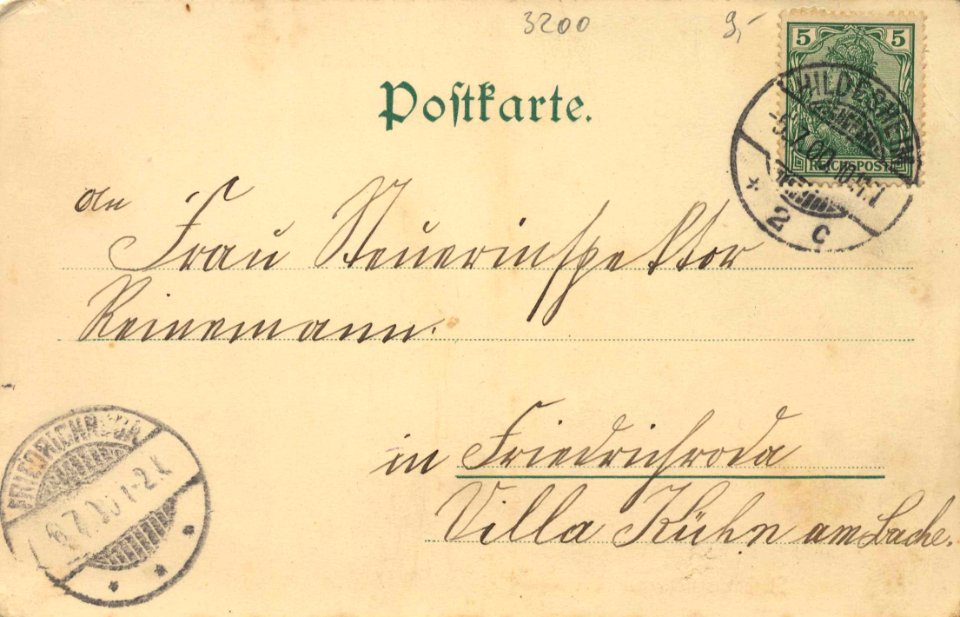 3200 9,-
5 5
REICHSPOST
HILDESHEIM
-5.7.00.10-11.V
* 2 c
Postkarte.
An
Frau Steuerinspektor
Reinemann.
in Friedrichroda
Villa Kühn am Bache.
FRIEDRICHRODA
6.7.00.1-2.N
* * *